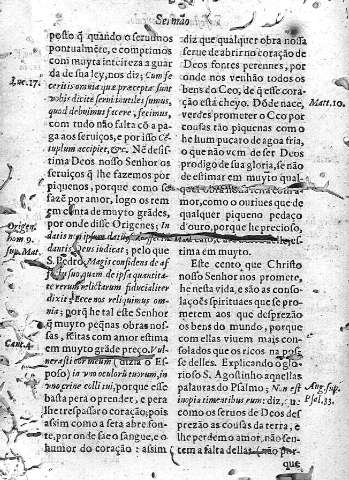 Sermão
posto q̃ quando o seruimos
pontualmẽte, e comprimos
com muyta inteireza a guar
da de sua ley, nos diz; Cum fe
ceritis omnia quæ præcepta sunt
vobis dicite serui inutiles sumus,
quod debuimus facere, fecimus,
com tudo não falta cõ a pa-
ga aos seruiços, e por isso Cẽ
tuplum accipiet, &c. Nẽ desi-
stima Deos nosso Senhor os
seruiços q̃ lhe fazemos por
piquenos, porque como se
fazẽ por amor, logo os rem
em conta de muyto grãdes,
por onde disse Origenes; In
dantis Deus iudicat; pelo que
S. Pedro, Magis confidens de af
terum relictarum fiducialiter
dixit; Ecce nos reliquimus om-
nia; porq̃ he tal este Senhor
q̃ muyto peq̃nas obras nos-
sas, feitas com amor estima
em muyto grãde preço. Vul-
nerasti cor meum (dizia o Es-
poso) in vno oculorum tuorum, in
vno crine colli tui, porque esse
basta pera o prender, e pera
lhe trespassar o coração; pois
assim como a seta abre fon-
te, por onde sae o sangue, e o
humor do coração: assim
Luc. 17.
Origen.
hom 9.
sup. Mat.
Cant. 4.
diz que qualquer obra nossa
serue de abrir no coração de
Deos fontes perennes, por
onde nos venhão todos os
bens do Ceo, de q̃ esse cora-
ção està cheyo. Dõde nace,
verdes prometer o Ceo por
cousas tão piquenas com o
he hum pucaro de agoa fria,
o que não vem de ser Deos
prodigo de sua gloria, se não
de estimar em muyto qual
amor, como o ouriues que de
qualquer piqueno pedaço
d'ouro, porque he precioso,
tima em muyto.
Este cento que Christo
nosso Senhor nos promete,
he nesta vida, e são as conso-
lações spirituaes que se pro-
metem aos que desprezão
os bens do mundo, porque
com ellas viuem mais con-
solados que os ricos na posse
delles. Explicando o glo-
rioso S. Agostinho aquellas
palauras do Psalmo; Non est
inopia timentibus eum: diz,
como os seruos de Deos des
prezão as cousas da terra, e
lhe perdem o amor, não sen-
tem a falta dellas (não por-
que
Matt. 10.
Aug. sup.
Psal. 33.